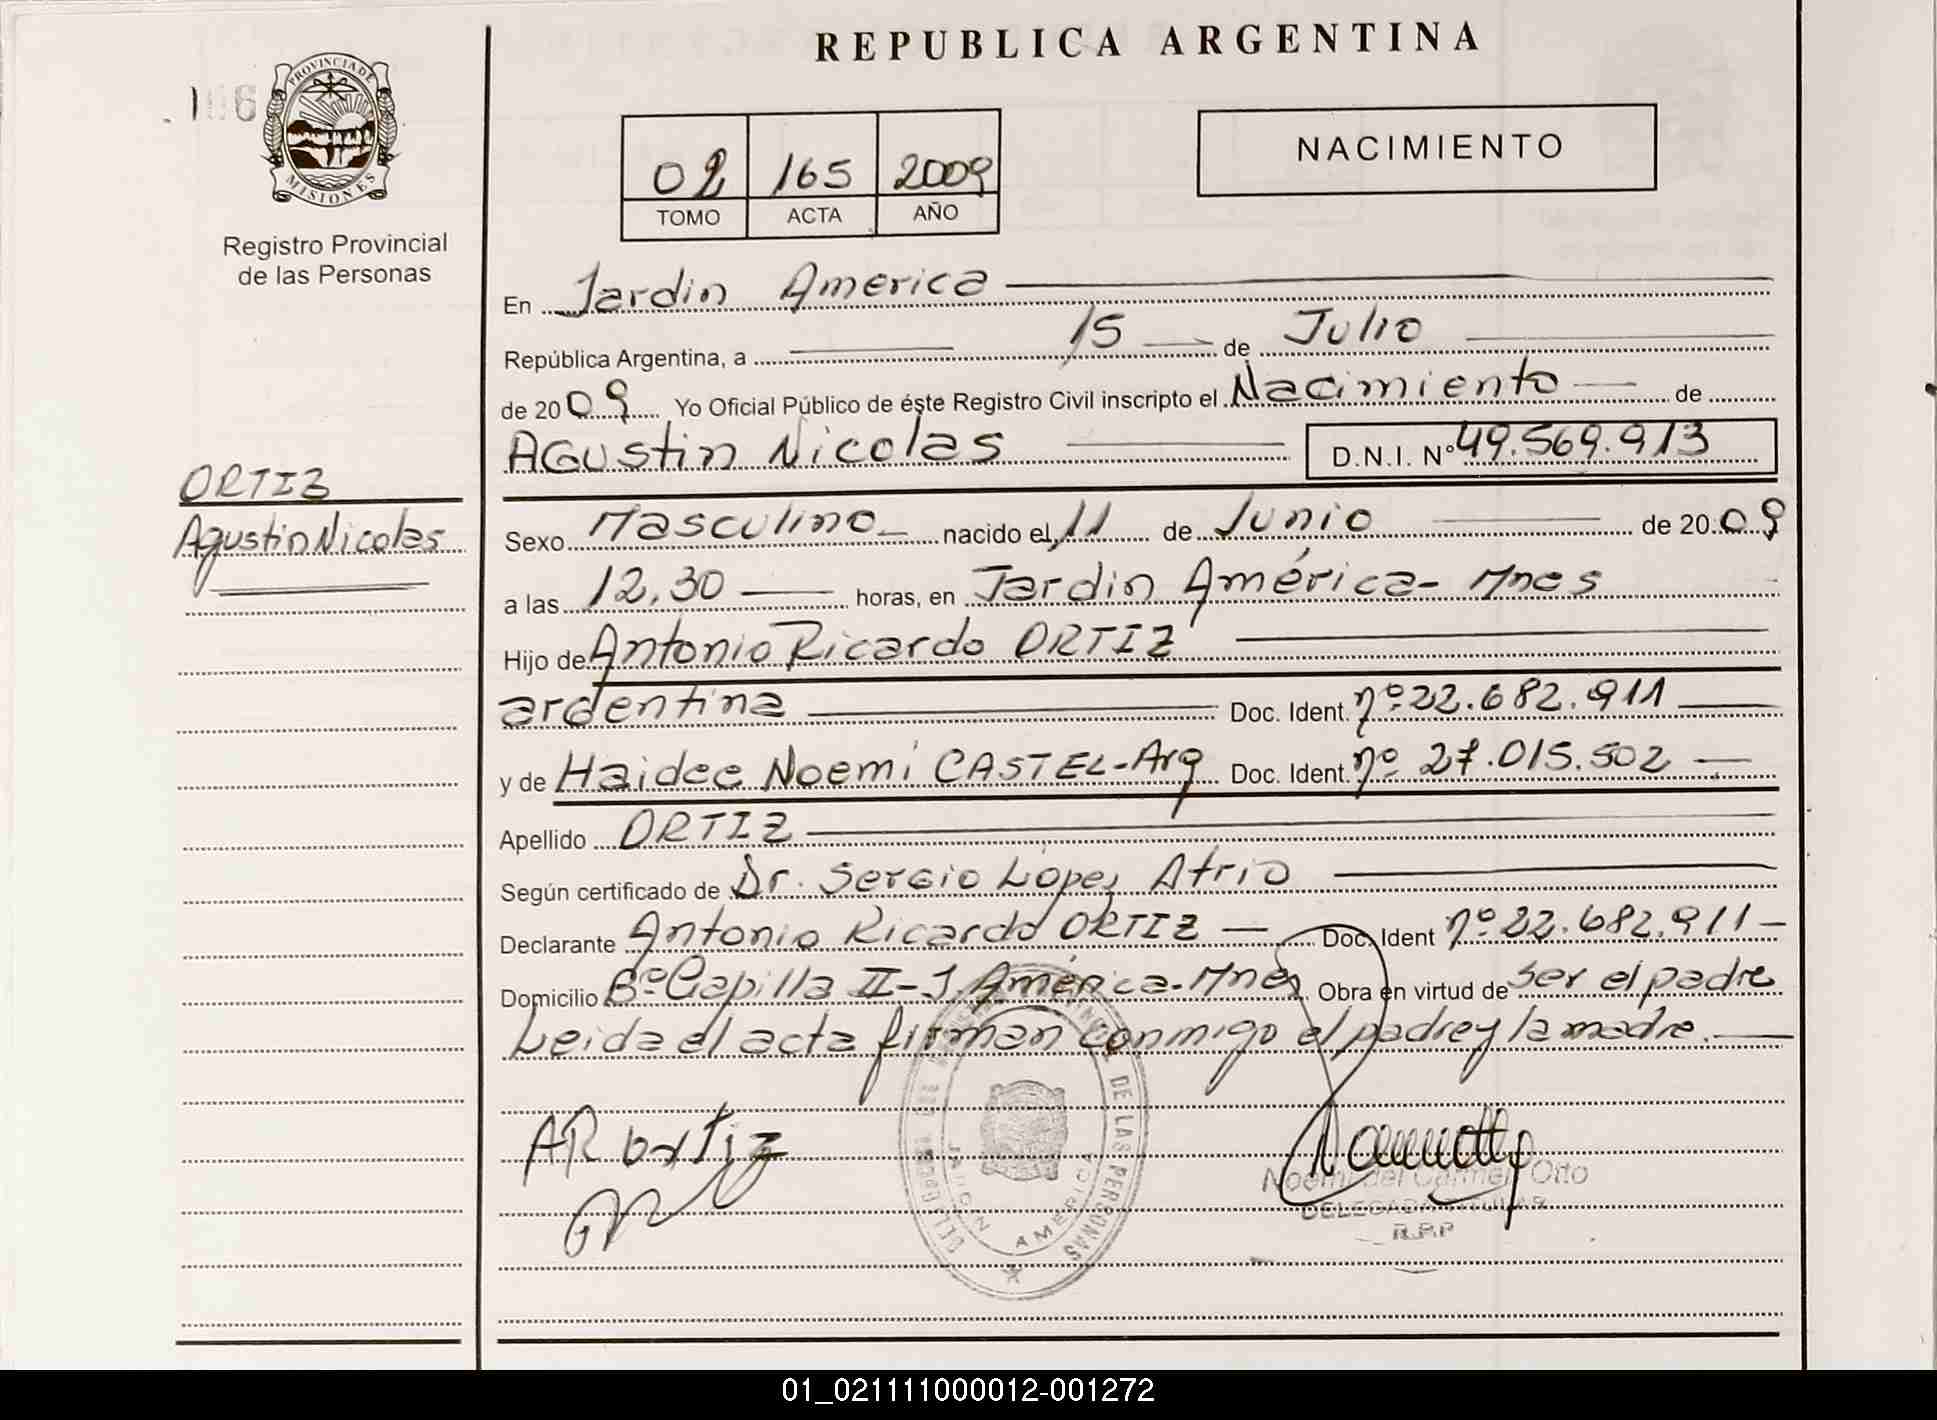 REPUBLICA ARGENTINA
PROVINCIA DE
MISIONES
Registro Provincial
de las Personas
02 165 2009
TOMO ACTA AÑO
NACIMIENTO
En Jardin America
República Argentina, a 15 de Julio
de 2009 Yo Oficial Público de éste Registro Civil inscripto el Nacimiento de
Agustin Nicolas D.N.I. Nº 49.569.913
ORTIZ
Agustin Nicolas
Sexo Masculino nacido el 11 de Junio de 2009
a las 12,30 horas, en Jardin América- Mnes
Hijo de Antonio Ricardo ORTIZ
argentina Doc. Ident. nº 22.682.911
y de Haidee Noemi CASTEL-Arg Doc. Ident. nº 27.015.502
Apellido ORTIZ
Según certificado de Dr. Sergio López Atrio
Declarante Antonio Ricardo ORTIZ Doc. Ident nº 22.682.911
Domicilio Bº Capilla II- J. América-Mnes Obra en virtud de ser el padre
Leida el acta firman conmigo el padre y la madre.
AROrtiz
DE LAS PERSONAS
JARDIN AMERICA
Noemi del Carmen Orto
DELEGADA TITULAR
R.P.P
01_021111000012-001272